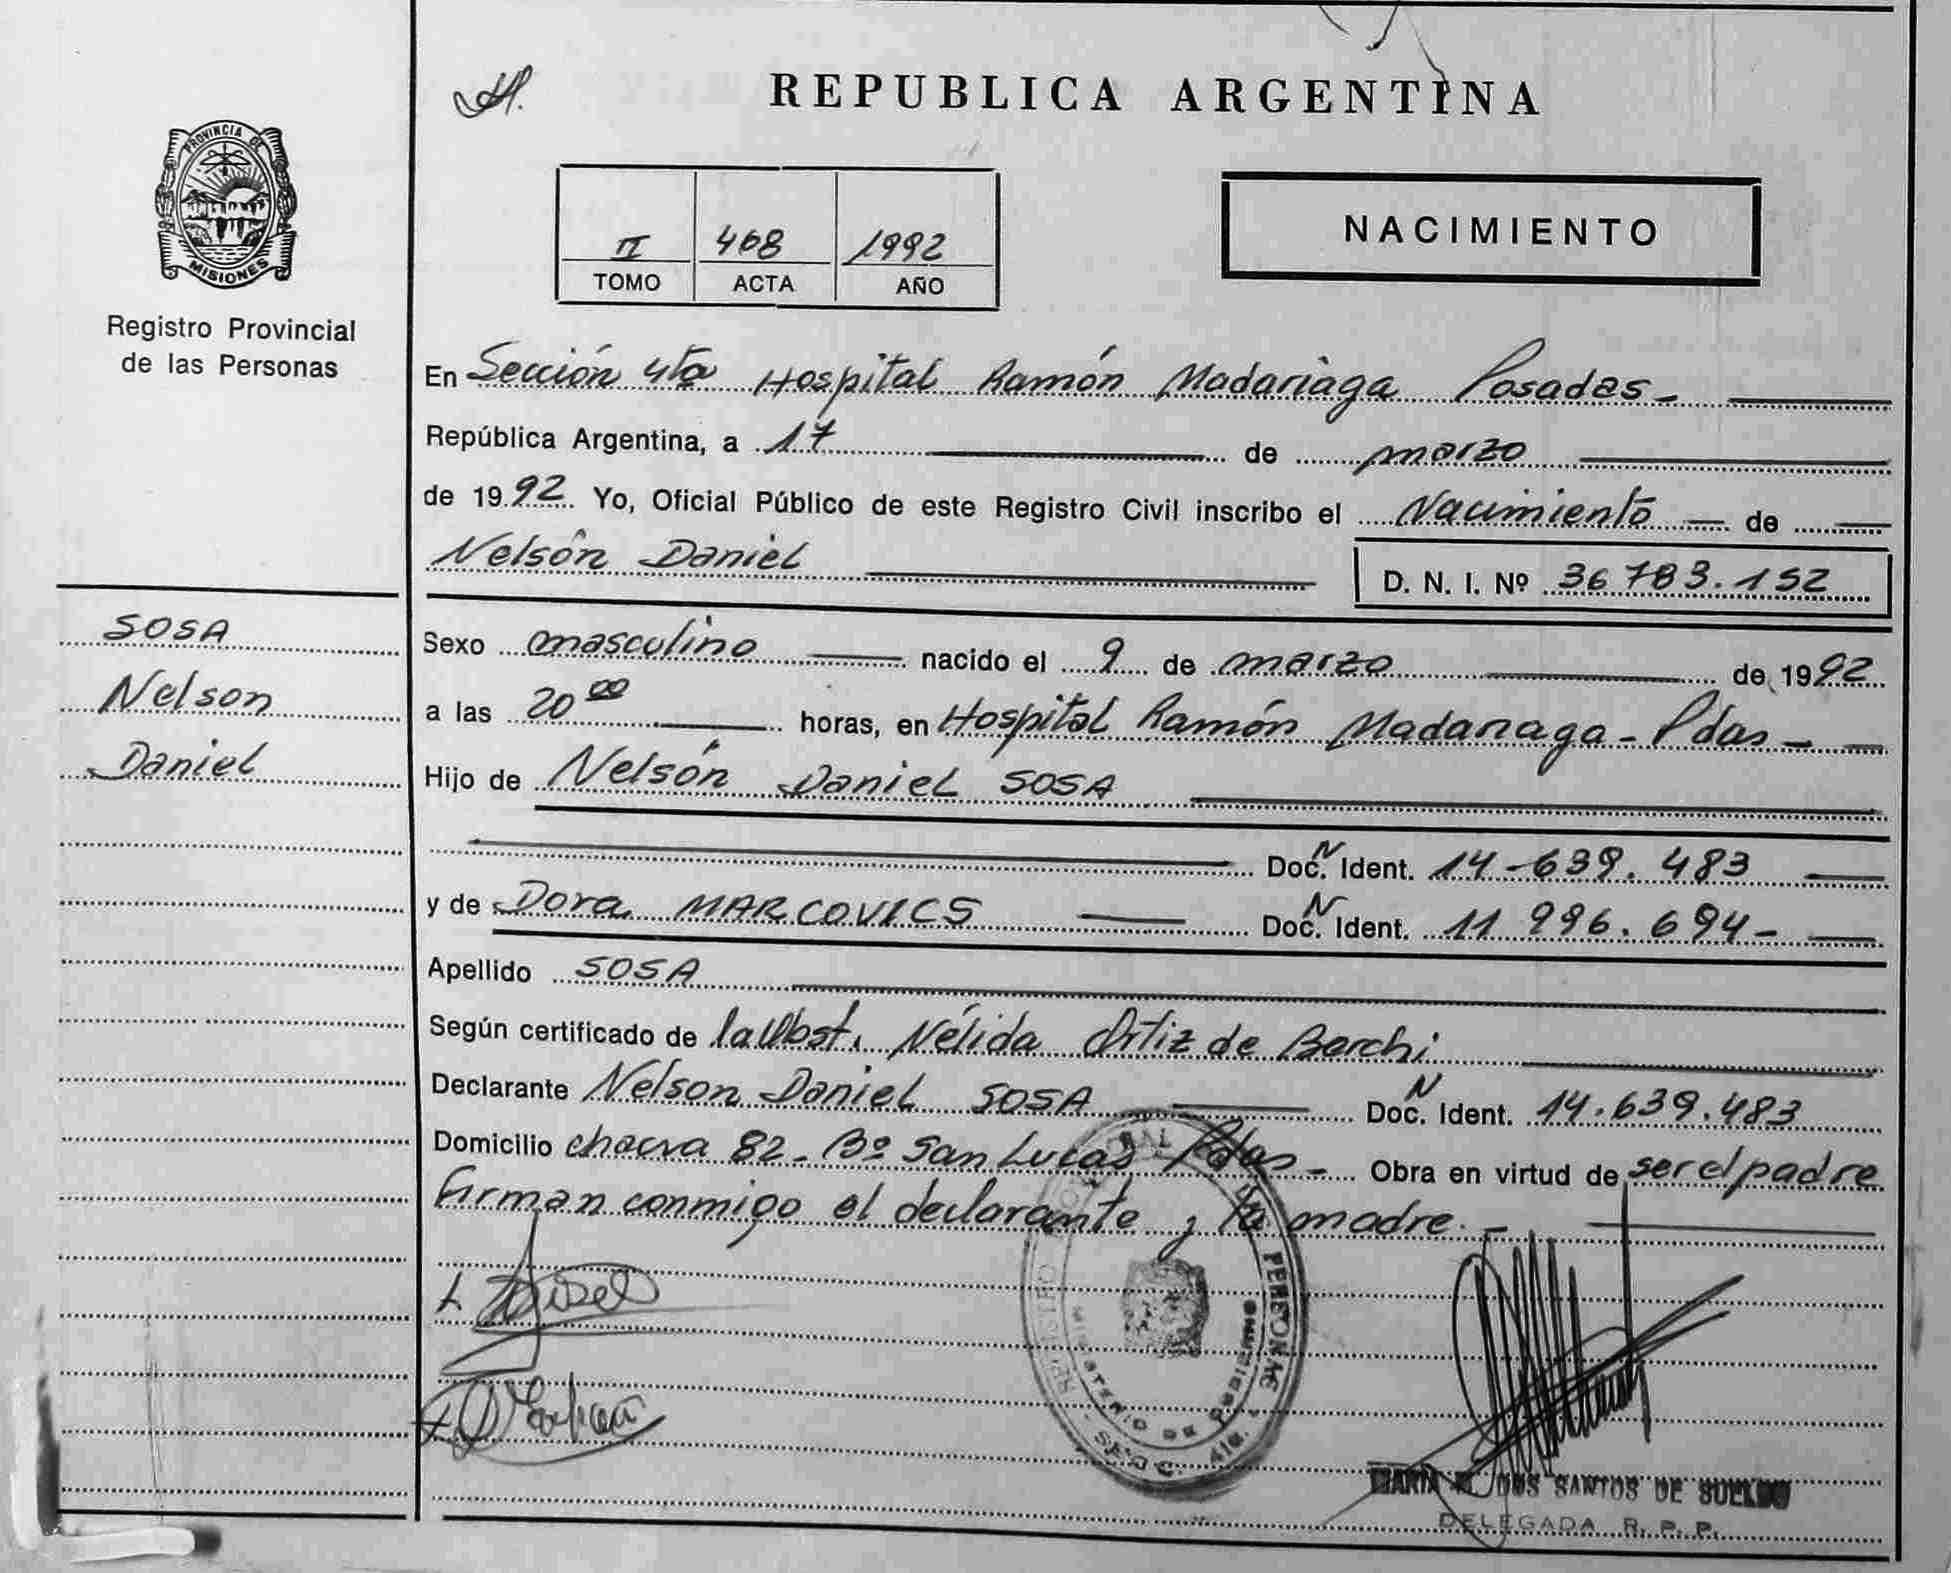 H.
REPUBLICA ARGENTINA
PROVINCIA DE
MISIONES
Registro Provincial
de las Personas
II 468 1992
TOMO ACTA AÑO
NACIMIENTO
En Sección 4ta Hospital Ramón Madariaga Posadas -
República Argentina, a 17 de marzo
de 1992 Yo, Oficial Público de este Registro Civil inscribo el Nacimiento de
Nelsón Daniel
D. N. I. Nº 36783.152
SOSA
Nelson
Daniel
Sexo masculino nacido el 9 de marzo de 1992
a las 20 00 horas, en Hospital Ramón Madariaga - Pdas -
Hijo de Nelsón Daniel SOSA
Doc. N Ident. 14-639.483
y de Dora MARCOVICS Doc. N Ident. 11 996.694-
Apellido SOSA
Según certificado de la Obst. Nélida Ortiz de Berchi
Declarante Nelson Daniel SOSA Doc. N Ident. 14.639.483
Domicilio chacra 82 - Bº San Lucas Pdas - Obra en virtud de ser el padre
Firman conmigo el declarante y la madre. -
MINISTERIO DE GOBIERNO
SECC. 4ta.
DOS SANTOS DE SUELDO
DELEGADA R. P. P.